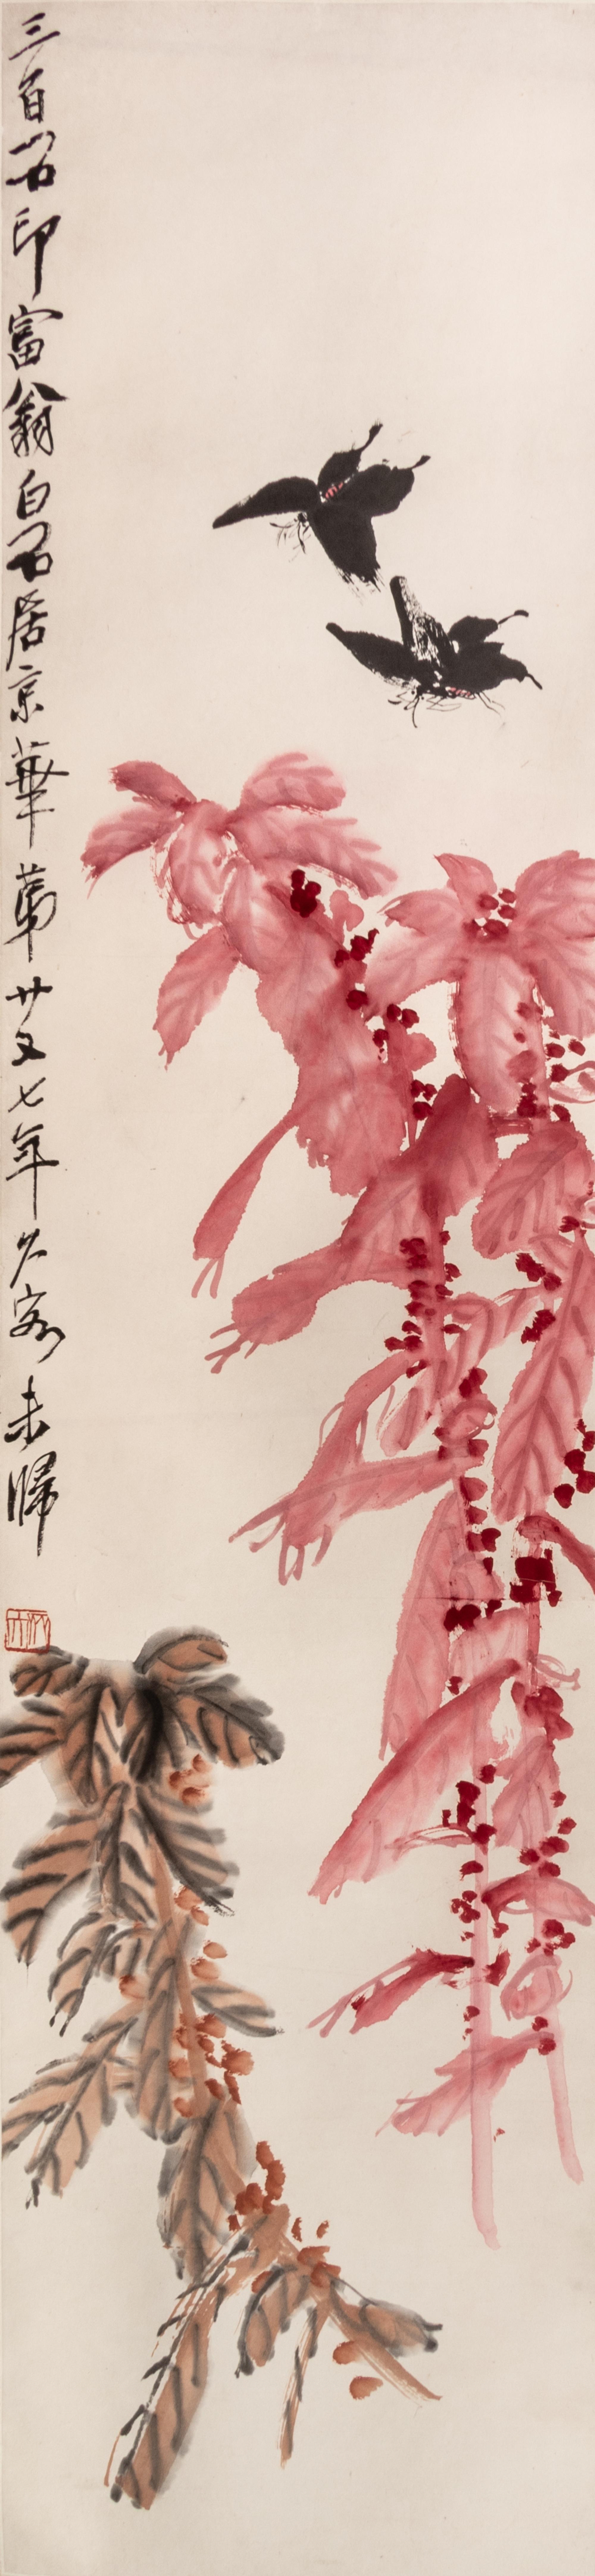 三百石印富翁白石居京華第廿又七年久客未歸
木人